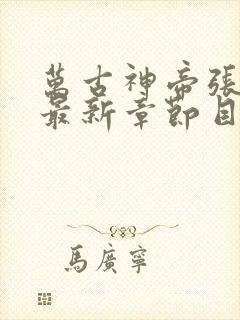 萬古神帝張
最新章節目
馬廣寧